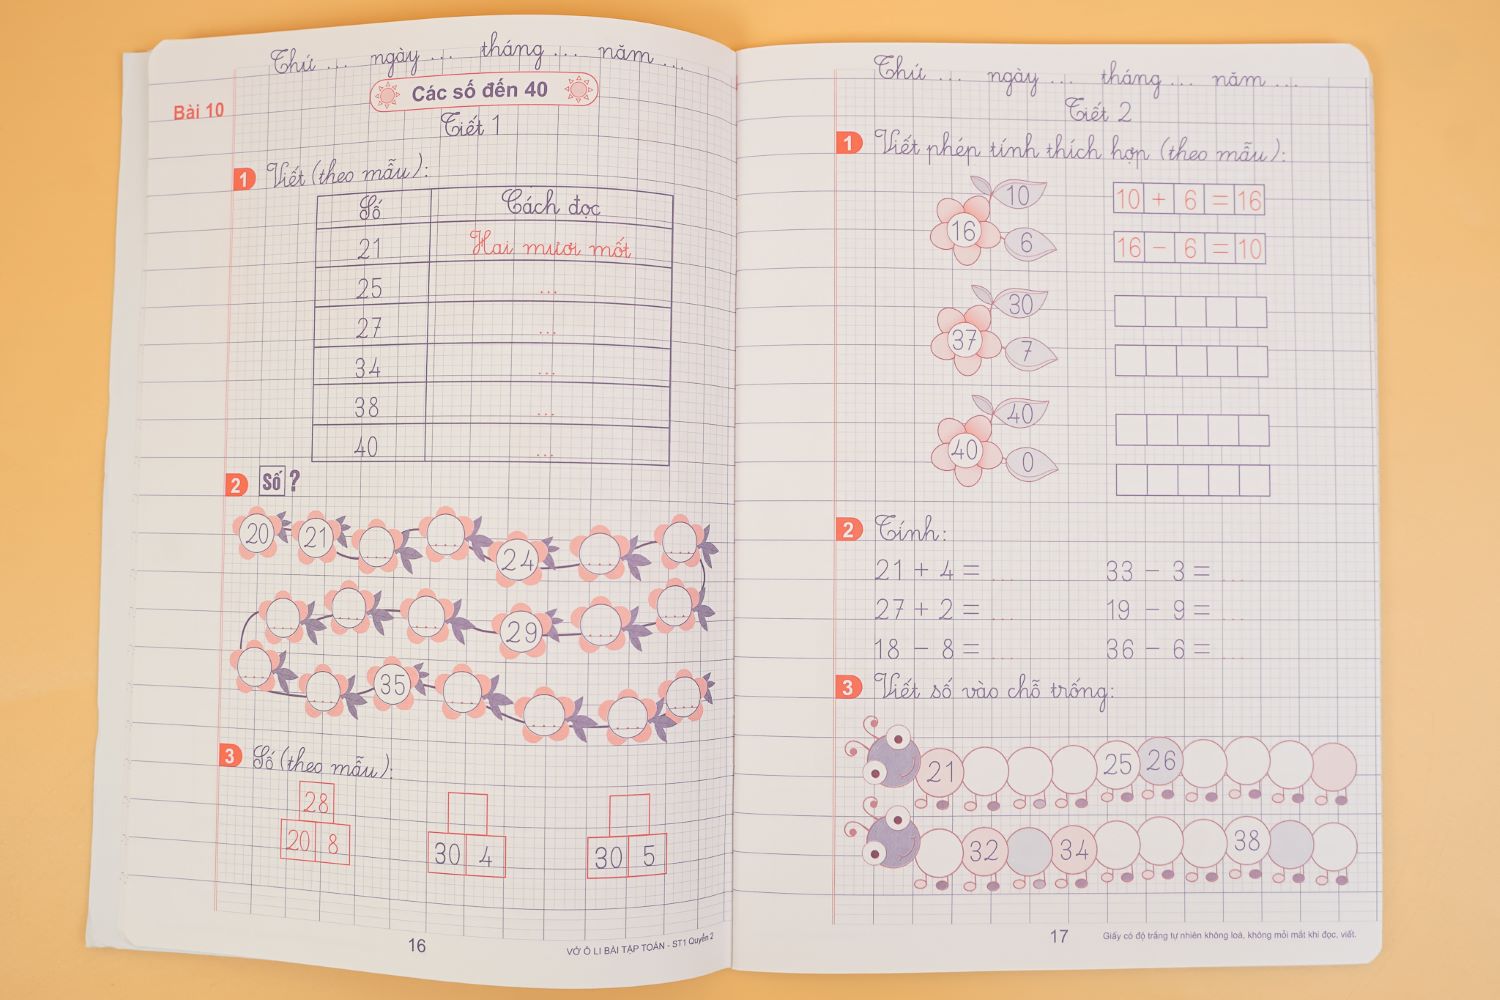 Thứ ... ngày ... tháng ... năm ...
Bài 10
Các số đến 40
Tiết 1
1 Viết (theo mẫu):
Số Cách đọc
21 Hai mươi mốt
25 ...
27 ...
34 ...
38 ...
40 ...
2 Số ?
20 21 ... ... 24 ... ...
... ... ... 29 ... ...
... ... 35 ... ... ... ...
3 Số (theo mẫu):
28
20 8 30 4 30 5
16
VỞ Ô LI BÀI TẬP TOÁN - ST1 Quyển 2
Thứ ... ngày ... tháng ... năm ...
Tiết 2
1 Viết phép tính thích hợp (theo mẫu):
10
16
6
10 + 6 = 16
16 - 6 = 10
30
37
7
40
40
0
2 Tính:
21 + 4 = ... 33 - 3 = ...
27 + 2 = ... 19 - 9 = ...
18 - 8 = ... 36 - 6 = ...
3 Viết số vào chỗ trống:
21 25 26
32 34 38
17
Giấy có độ trắng tự nhiên không loá, không mỏi mắt khi đọc, viết.